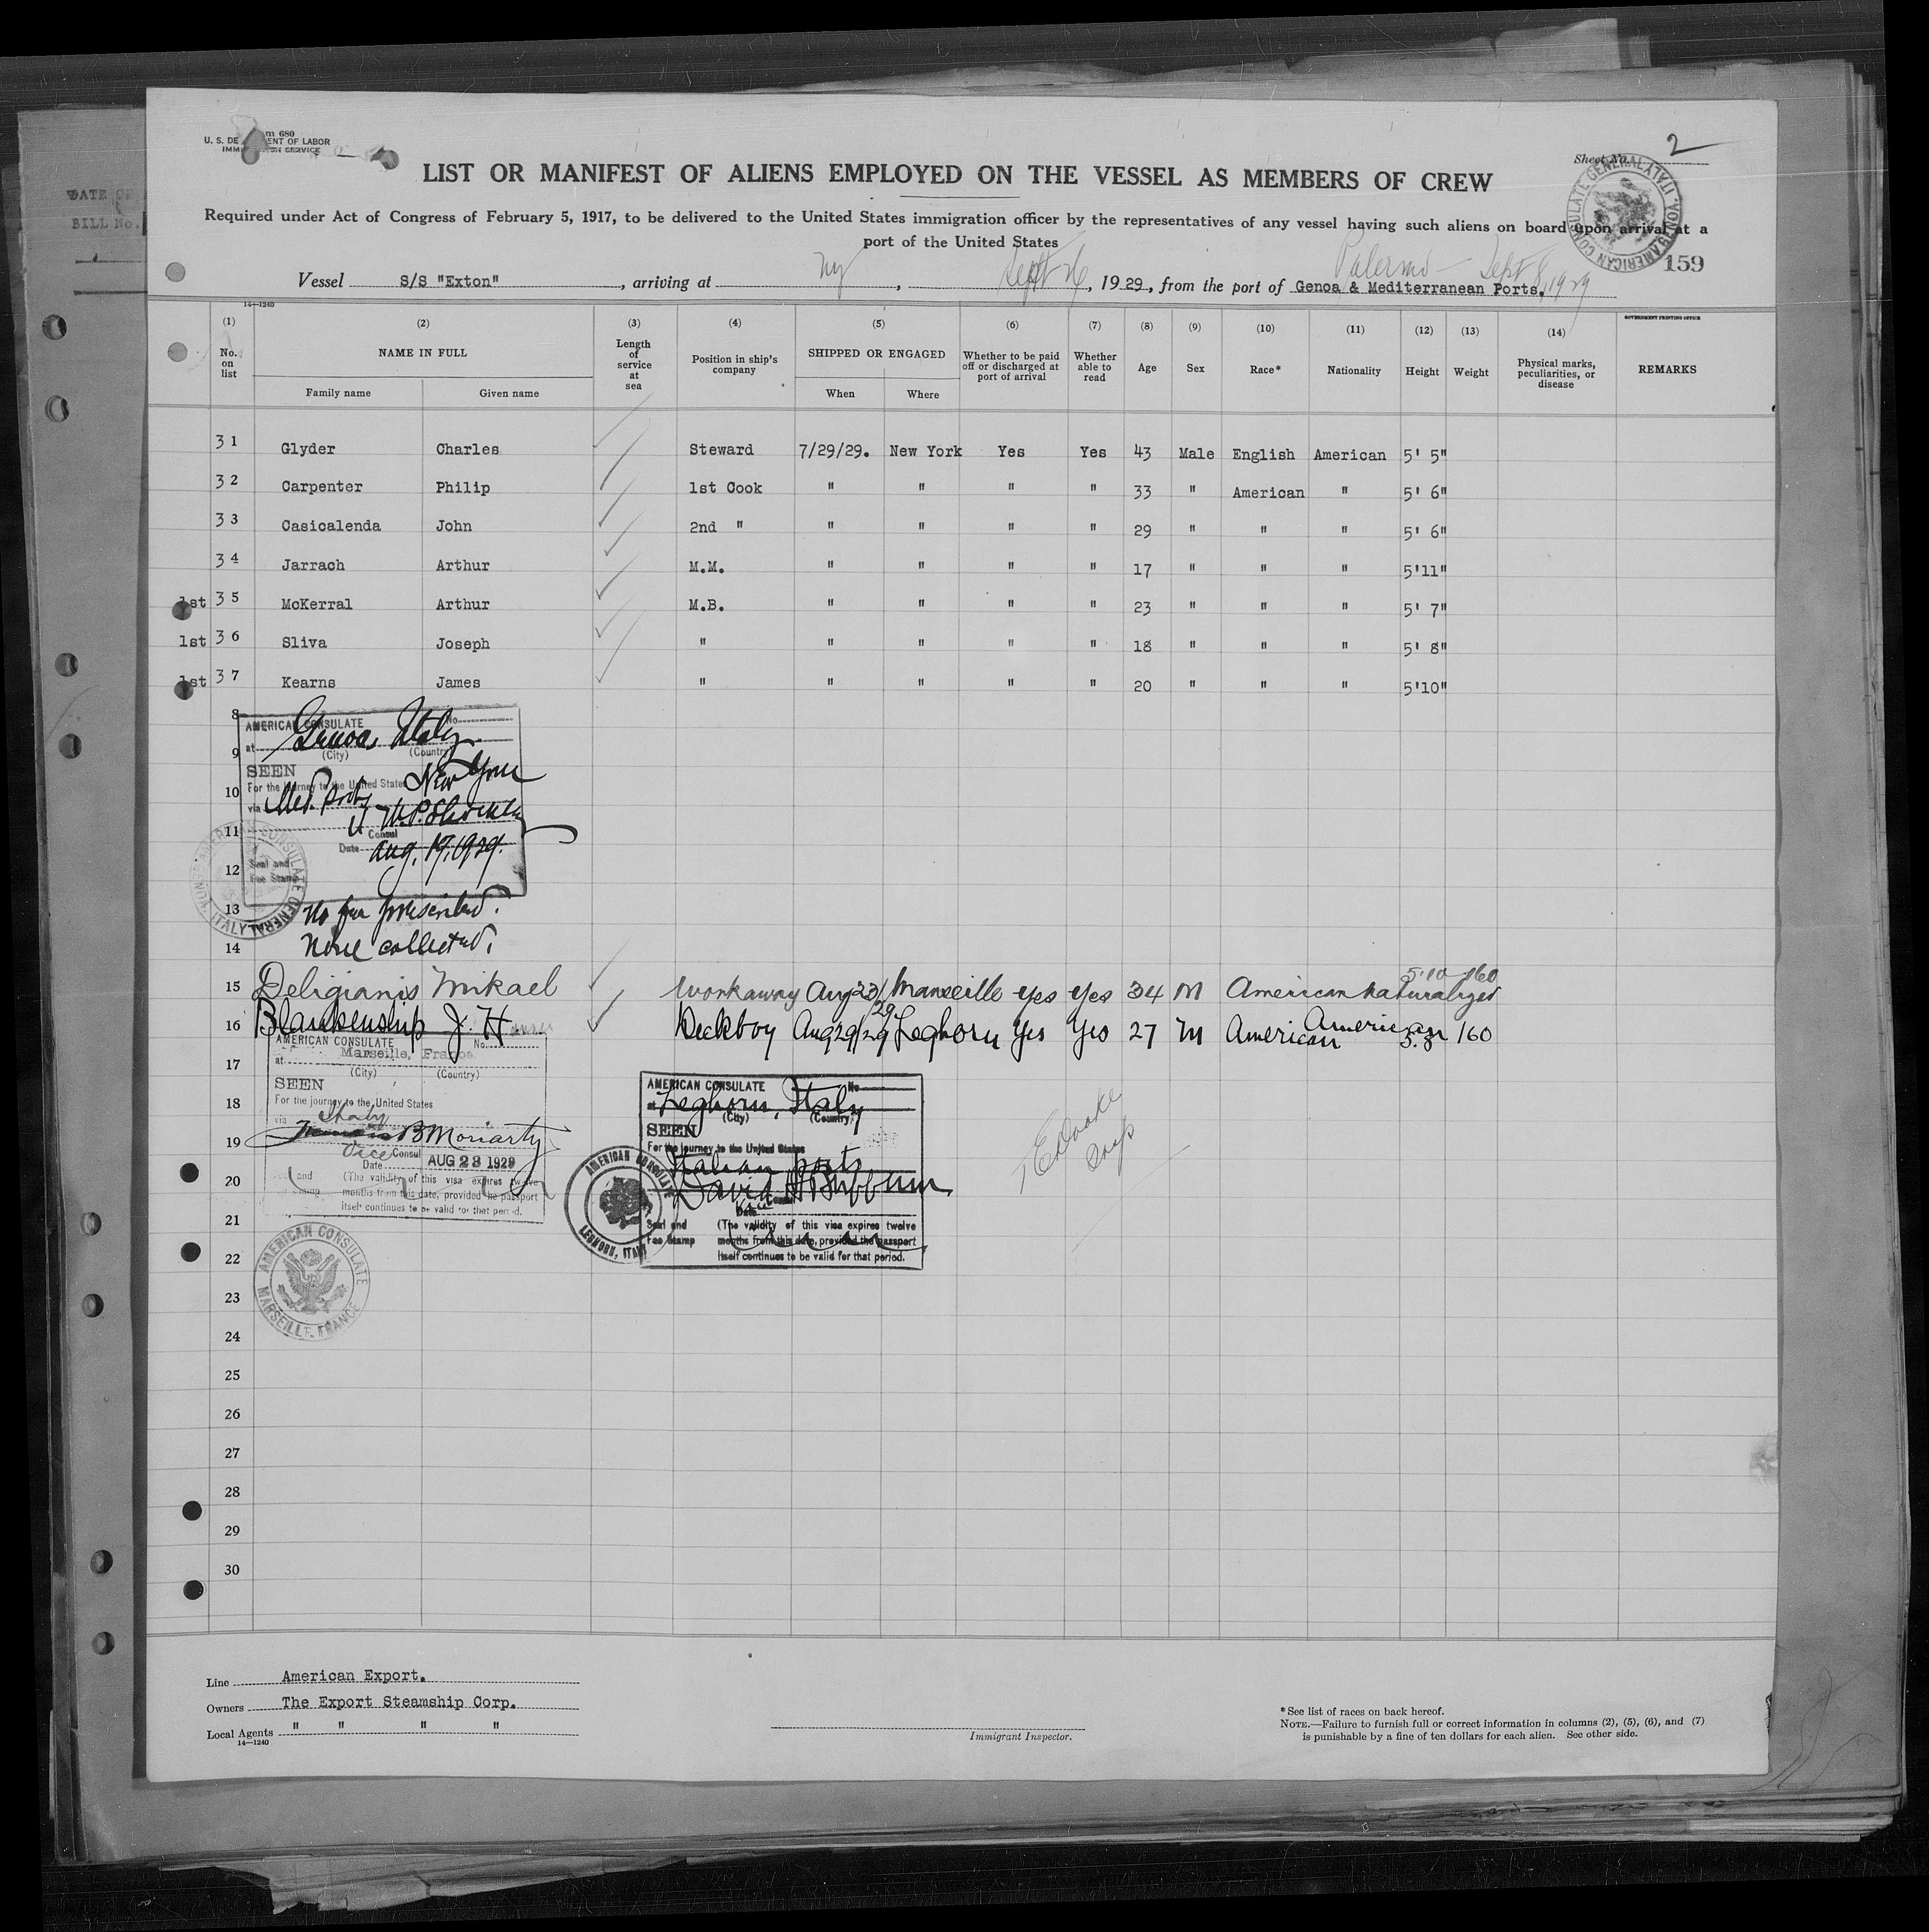 DATE OF
BILL No.
m 680
U. S. DE ENT OF LABOR
IMM ON SERVICE
Sheet No. 2
LIST OR MANIFEST OF ALIENS EMPLOYED ON THE VESSEL AS MEMBERS OF CREW
AMERICAN CONSULATE GENERAL GENOA, ITALY
Required under Act of Congress of February 5, 1917, to be delivered to the United States immigration officer by the representatives of any vessel having such aliens on board upon arrival at a
port of the United States
159
Palermo - Sept 8, 1929
Vessel S/S "Exton", arriving at ny, Sept 26, 1929, from the port of Genoa & Mediterranean Ports.
14—1240
GOVERNMENT PRINTING OFFICE
(1) (2) (3) (4) (5) (6) (7) (8) (9) (10) (11) (12) (13) (14)
No. on list NAME IN FULL Length of service at sea Position in ship's company SHIPPED OR ENGAGED Whether to be paid off or discharged at port of arrival Whether able to read Age Sex Race* Nationality Height Weight Physical marks, peculiarities, or disease REMARKS
Family name Given name When Where
31 Glyder Charles Steward 7/29/29. New York Yes Yes 43 Male English American 5' 5"
32 Carpenter Philip 1st Cook " " " " 33 " American " 5' 6"
33 Casicalenda John 2nd " " " " " 29 " " " 5' 6"
34 Jarrach Arthur M.M. " " " " 17 " " " 5'11"
1st 35 McKerral Arthur M.B. " " " " 23 " " " 5' 7"
1st 36 Sliva Joseph " " " " " 18 " " " 5' 8"
1st 37 Kearns James " " " " " 20 " " " 5'10"
8
AMERICAN CONSULATE No.
at Genoa, Italy
9
(City) (Country)
SEEN
For the journey to the United States New York
10
via Med. Ports
11
Consul
Date Aug. 19, 1929.
12
Seal and
Fee Stamp
AMERICAN CONSULATE GENERAL GENOA, ITALY
13 No fee prescribed.
14 None collected.
15 Deligianis Mikael Workaway Aug 23/29 Marseille yes yes 34 M American naturalized 5'10 160
16 Blankenship J. H Deckboy Aug 29/29 Leghorn Yes Yes 27 M American American 5.8 160
AMERICAN CONSULATE No.
at Marseille, France
17
(City) (Country)
SEEN
For the journey to the United States
18
via Italy
19
B Moriarty
Vice Consul
Date AUG 23 1929
20
and
(The validity of this visa expires twelve
months from this date, provided the passport
itself continues to be valid for that period.
AMERICAN CONSULATE MARSEILLE, FRANCE
AMERICAN CONSULATE No
at Leghorn, Italy
(City) (Country)
SEEN
For the journey to the United States
Italian ports
David H Buffum
Consul
Date
Seal and
Fee Stamp
(The validity of this visa expires twelve
months from this date, provided the passport
itself continues to be valid for that period.
AMERICAN CONSULATE LEGHORN, ITALY
21
22
23
24
25
26
27
28
29
30
Line American Export.
Owners The Export Steamship Corp.
Local Agents " " " "
14—1240
Immigrant Inspector.
*See list of races on back hereof.
NOTE.—Failure to furnish full or correct information in columns (2), (5), (6), and (7)
is punishable by a fine of ten dollars for each alien. See other side.